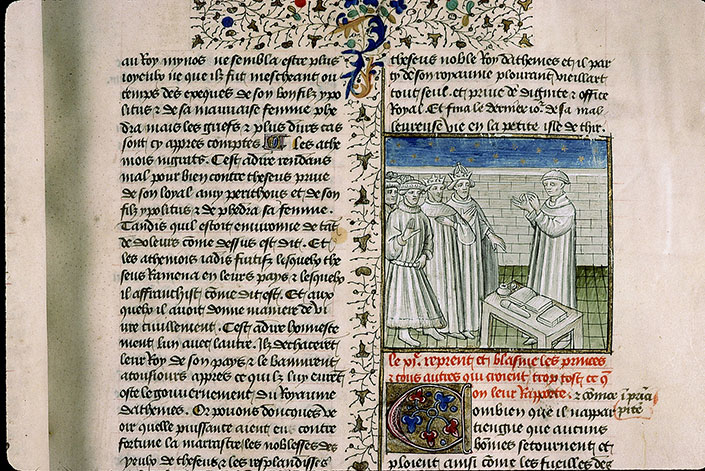 au Roy mynos ne sembla estre plus
ioyeulx ne que il fut meschant ou
temps des exeques de son bon filz ypo
litus & de sa mauuaise femme phe
dra mais les griefz & plus durs cas
sont cy apres comptes Les athe
mois ingratz. Cest a dire rendans
mal pour bien contre theseus priue
de son loyal amy perithous et de son
filz ypolitus & de phedra sa femme.
Tandis quil estoit enuironne de tãt
de doleurs cõme dessus est dit. Et
les athemois iadis fuitifz lesquelx the
seus Ramena en leurs pays & lesquelx
il affranchist cõme dit est. Et aux
quelx il auoit donne maniere de vi
ure ciuillement. Cest a dire honneste
ment lun auec lautre. Ilz dechacerẽt
leur Roy de son pays & le bannirent
a tousiours apres ce quilz luy eurẽt
oste le gouuernement du Royaume
dathemes. Or pouons doncques ve
oir quelle puissante aient eu contre
fortune la marrastre les noblesses des
yeulx de theseus & les resplandisse
theseus noble Roy dathemes et il par
ty de son royaume plourant vieillart
tout seul et priue de dignite & office
Royal. Et fina le dernier io2 de sa mal
leureuse vie en la petite isle de thir.
le ps. reprent et blasme les princes
& tous autres qui croient trop tost ce q̃
on leur Rapporte. & cõmẽce ĩ prĩci
Combien que il nappar pite
tiengne que aucuns
hõmes se tournent et
ploient ainsi come les fueilles des